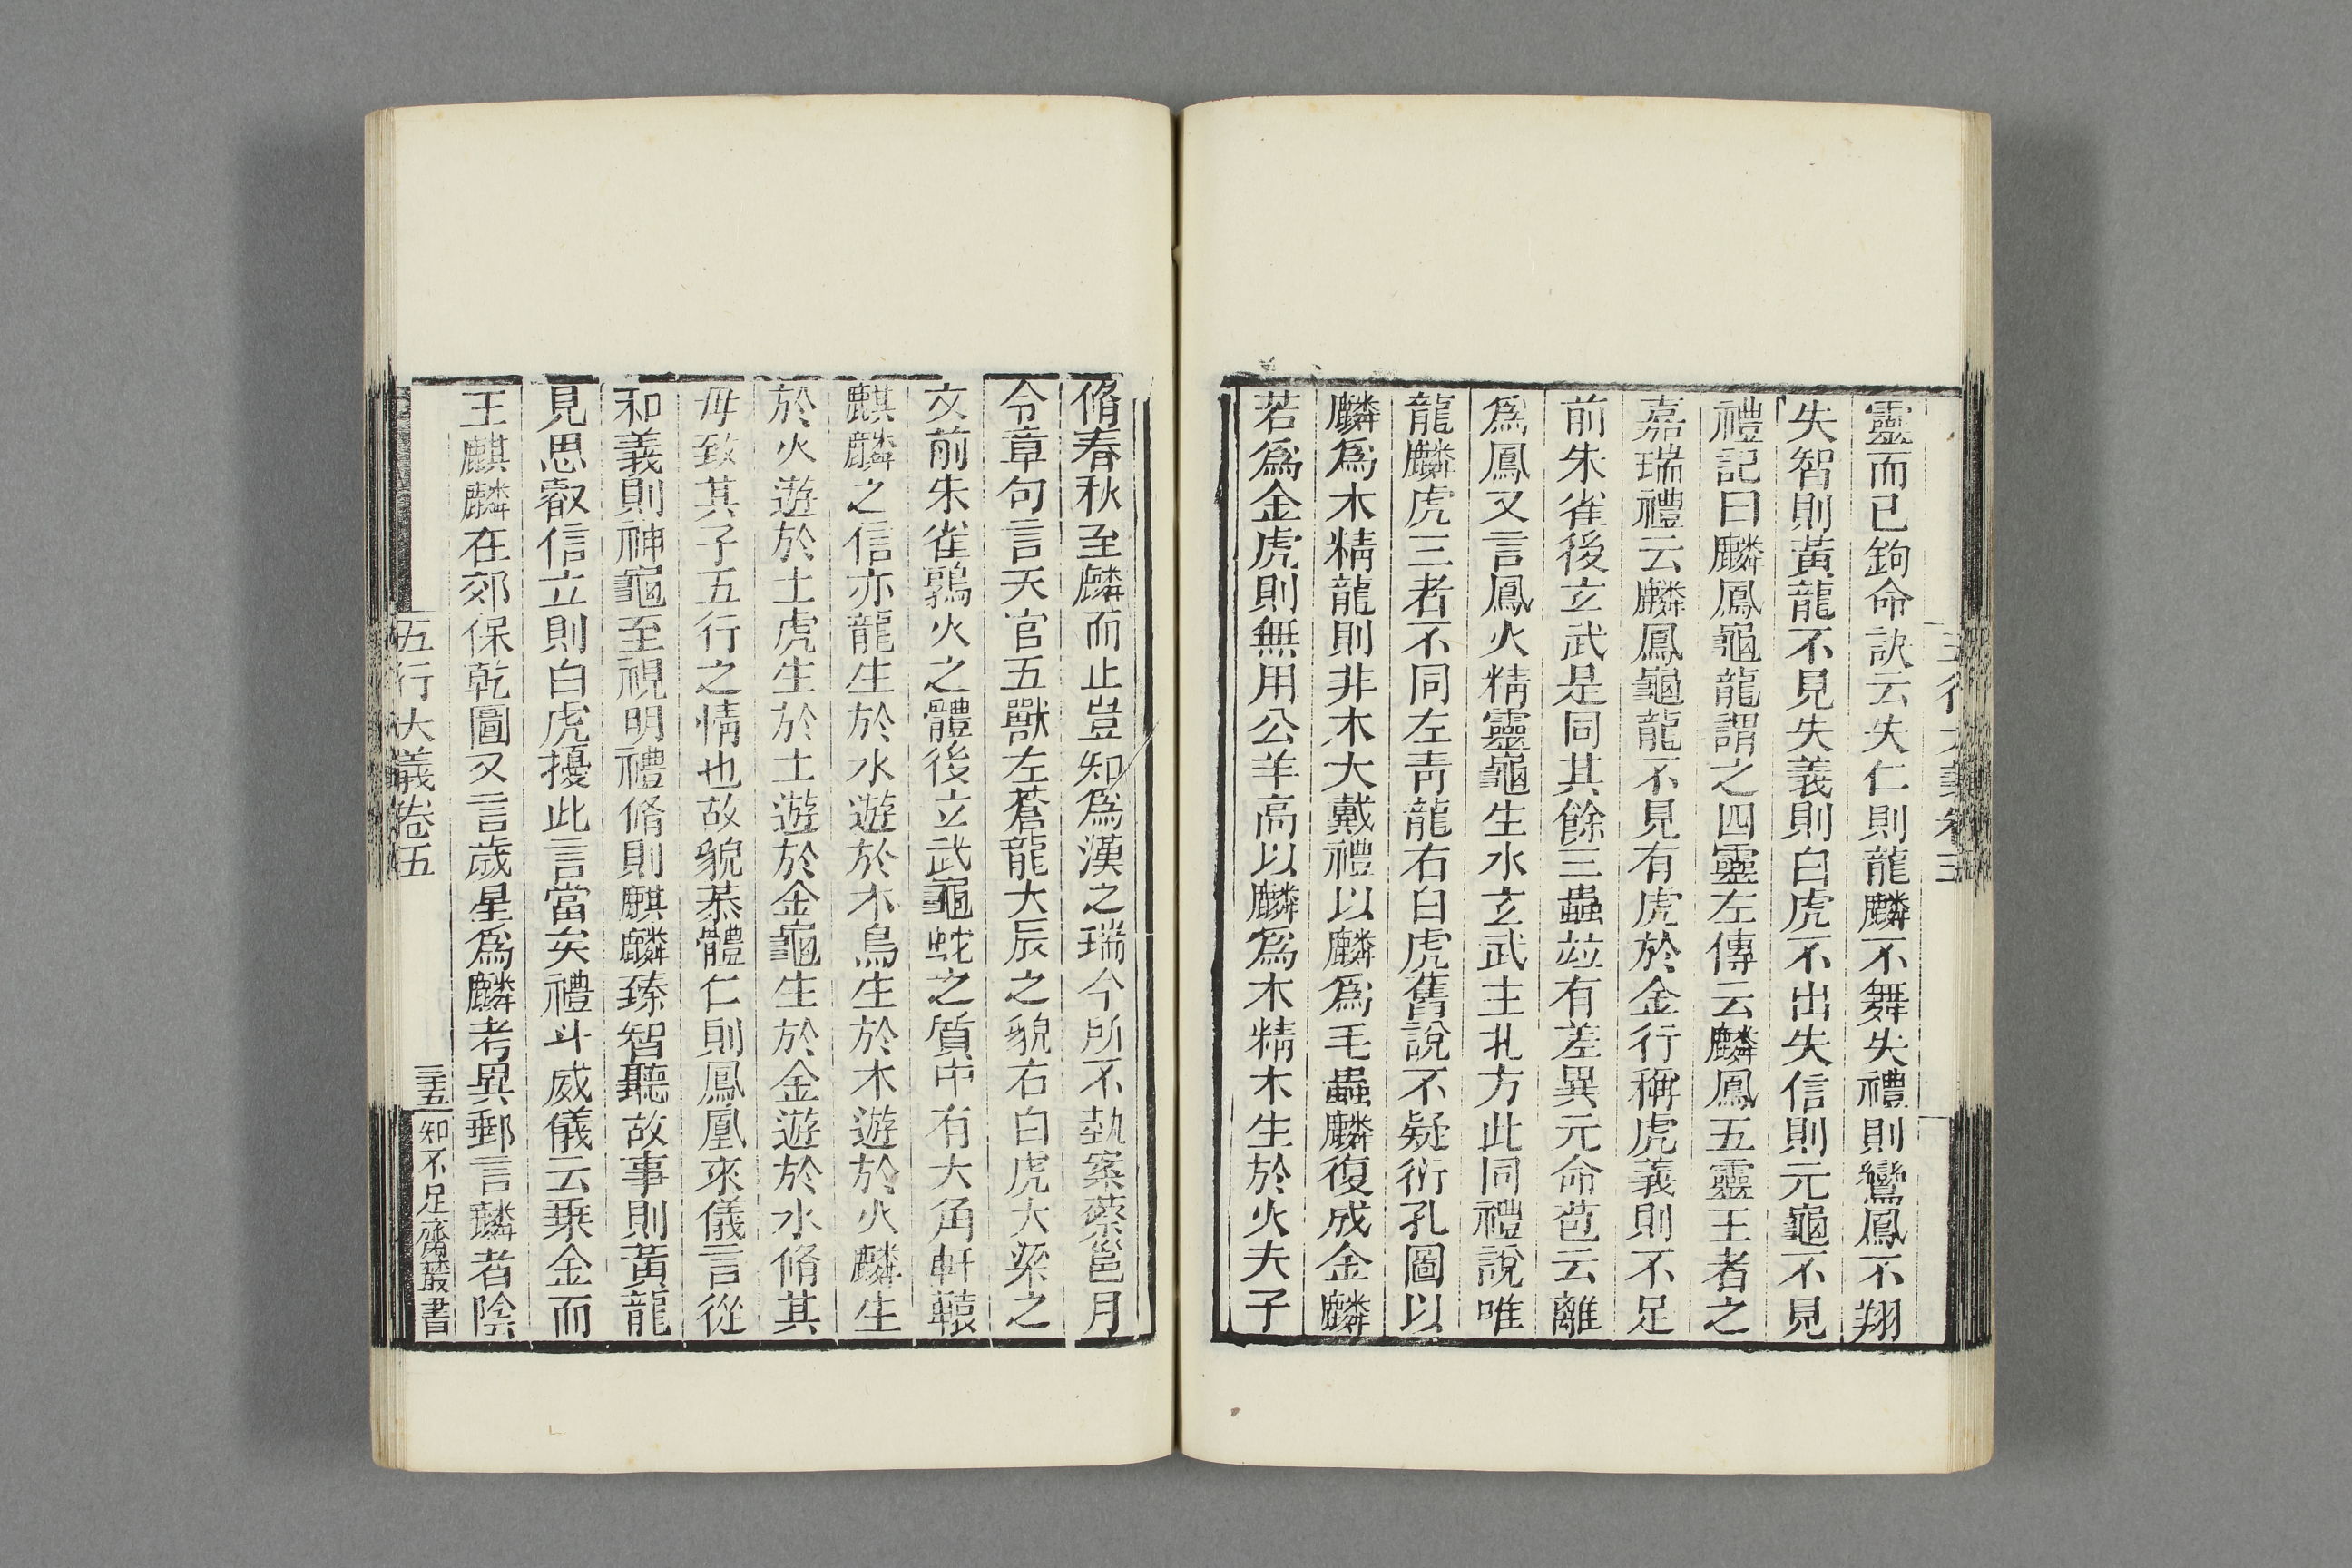 靈而已鉤命訣云失仁則龍麟不舞失禮則鸞鳳不翔
失智則黃龍不見失義則白虎不出失信則元龜不見
禮記曰麟鳳龜龍謂之四靈左傳云麟鳳五靈王者之
嘉瑞禮云麟鳳龜龍不見有虎於金行稱虎義則不足
前朱雀後玄武是同其餘三蟲竝有差異元命苞云離
爲鳳又言鳳火精靈龜生水玄武主北方此同禮說唯
龍麟虎三者不同左靑龍右白虎舊說不疑衍孔圖以
麟爲木精龍則非木大戴禮以麟爲毛蟲麟復成金麟
若爲金虎則無用公羊高以麟爲木精木生於火夫子
脩春秋至麟而止豈知爲漢之瑞今所不執案蔡邕月
令章句言天官五獸左蒼龍大辰之貌右白虎大梁之
文前朱雀鶉火之體後玄武龜蛇之質中有大角軒轅
麒麟之信亦龍生於水遊於木鳥生於木遊於火麟生
於火遊於土虎生於土遊於金龜生於金遊於水脩其
毋致其子五行之情也故貌恭體仁則鳳凰來儀言從
和義則神龜至視明禮脩則麒麟臻智聽故事則黃龍
見思叡信立則白虎擾此言當矣禮斗威儀云乗金而
王麒麟在郊保乾圖又言歲星爲麟考異郵言麟者陰
五行大義卷五
三五
知不足齋叢書